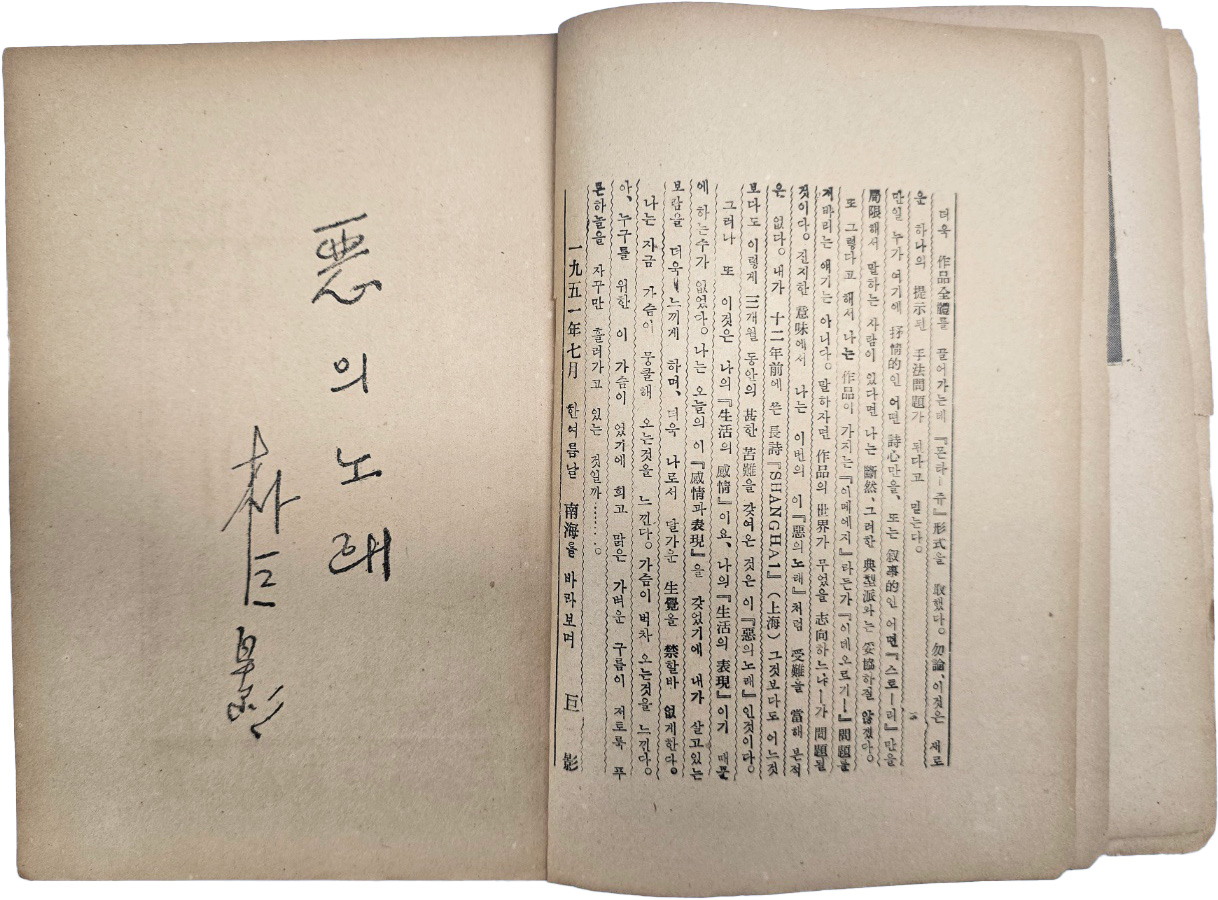 더욱 作品全體를 끌어가는데 『몬타―쥬』形式을 取했다。勿論、이것은 새로
운 하나의 提示된 手法問題가 된다고 믿는다。
만일 누가 여기에 抒情的인 어떤 詩心만을、또는 敍事的인 어떤『스토―리』만을
局限해서 말하는 사람이 있다면 나는 斷然、그러한 典型派와는 妥協하질 않겠다。
또 그렇다고 해서 나는 作品이 가지는『이메에지』라든가『이데오르기―』問題를
저바리는 얘기는 아니다。말하자면 作品의 世界가 무엇을 志向하느냐―가 問題될
것이다。진지한 意味에서 나는 이번의 이『惡의노래』처럼 受難을 當해 본적
은 없다。내가 十二年前에 쓴 長詩『SHANGHAI』(上海) 그것보다도 어느것
보다도 이렇게 三개월 동안의 甚한 苦難을 갖여온 것은 이『惡의노래』인것이다。
그러나 또 이것은 나의『生活의 感情』이요、나의『生活의 表現』이기 때문
에 하는수가 없었다。나는 오늘의 이『感情과表現』을 갖었기에 내가 살고있는
보람을 더욱 느끼게 하며、더욱 나로서 달가운 生覺을 禁할바 없게한다。
나는 지금 가슴이 뭉클해 오는것을 느낀다。가슴이 벅차 오는것을 느낀다。
아、누구를 위한 이 가슴이 었기에 희고 맑은 가벼운 구름이 저토록 푸
른하늘을 자꾸만 흘러가고 있는 것일까……。
一九五一年七月 한여름날 南海를 바라보며 巨影
惡의노래
朴巨影